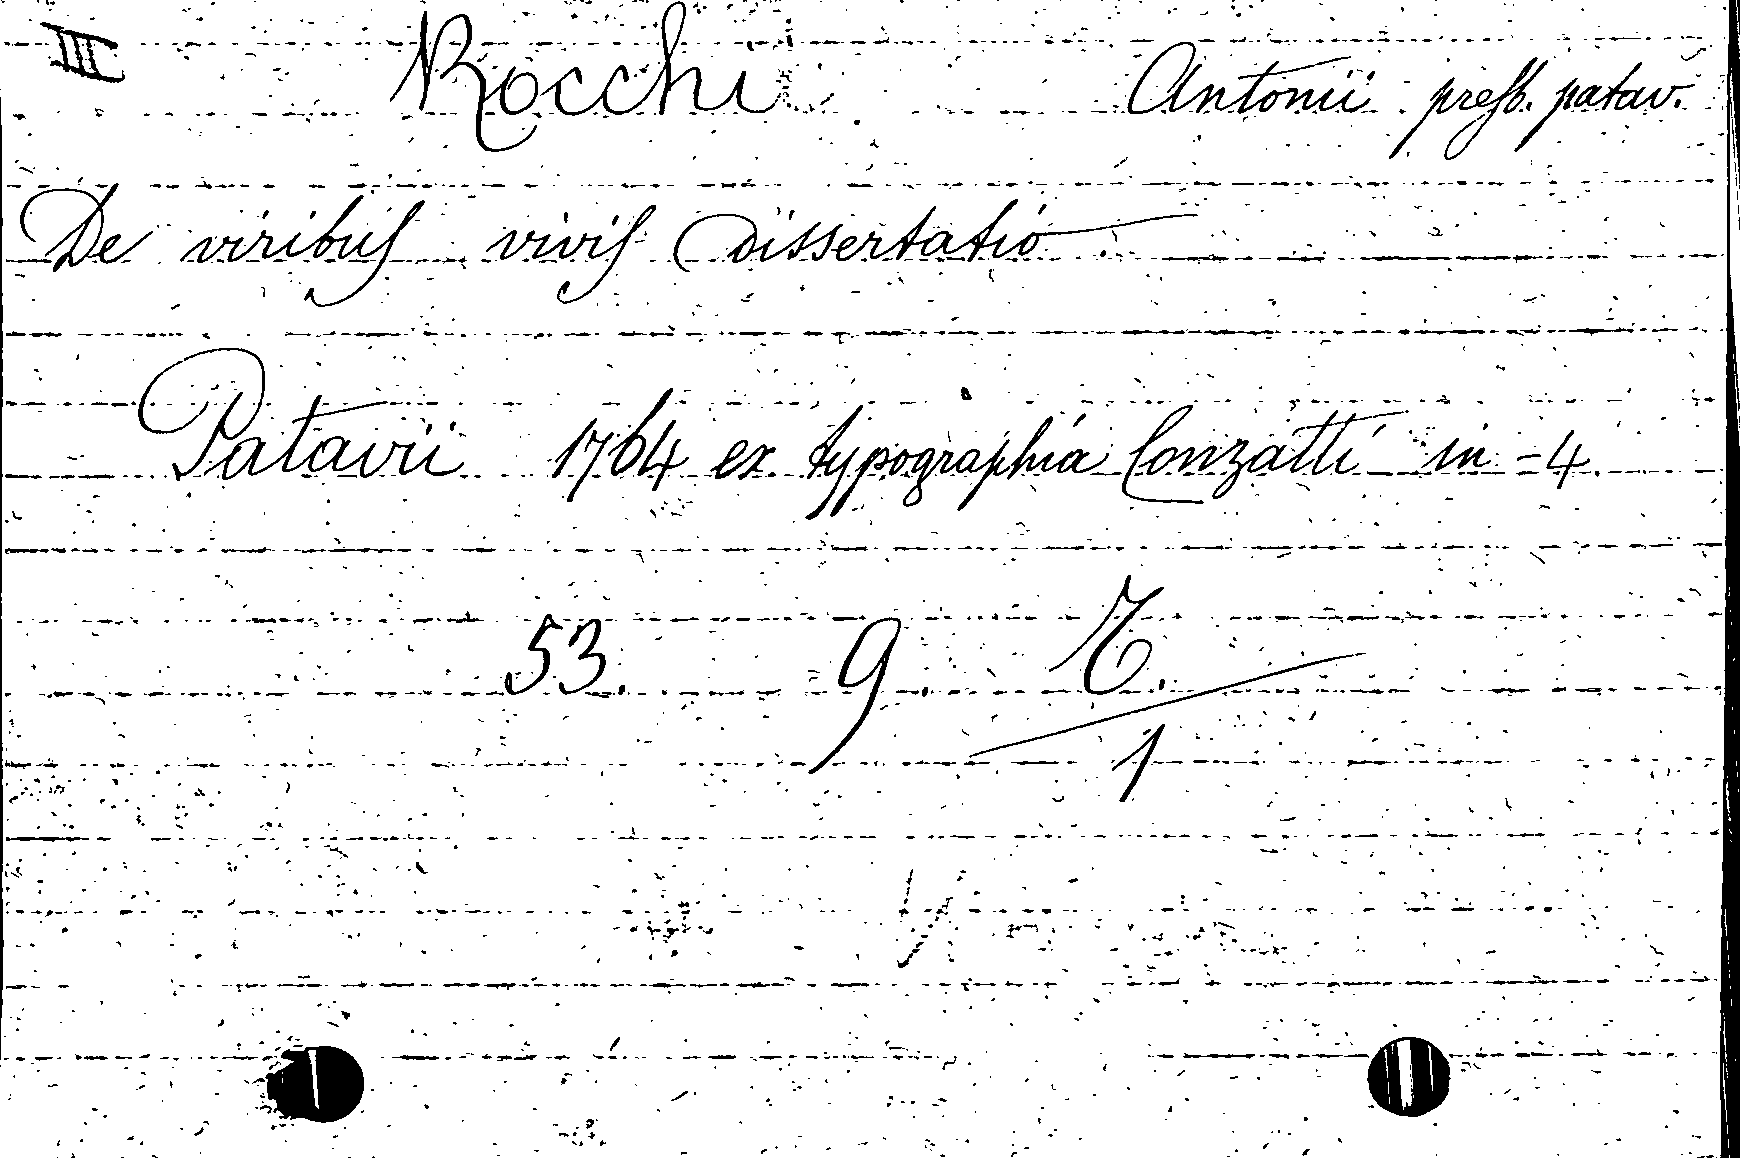 III Rocchi Antonii presb. patav.
De viribus vivis Dissertatio
Patavii 1764 ex typographia Conzatti in-4.
53. 9. Z.
1